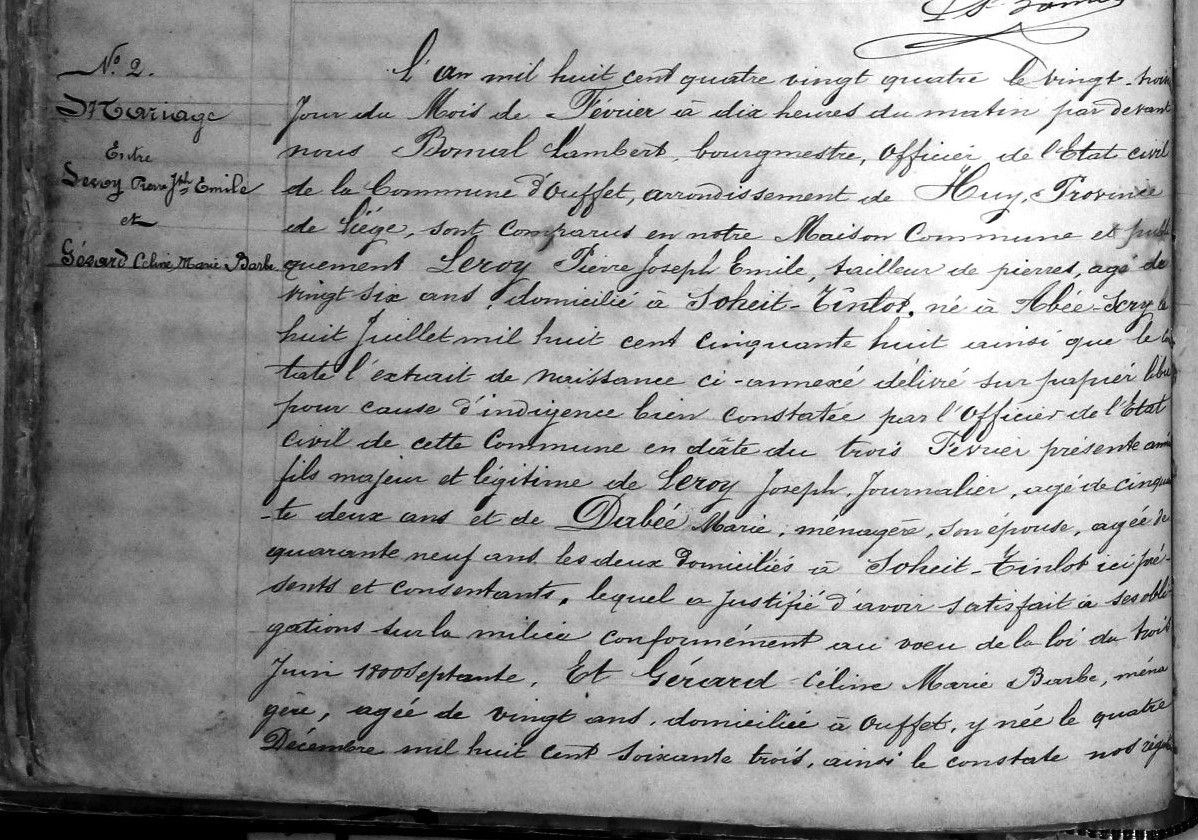 N.° 2.
Mariage
Entre
Leroy Pierre Jph Emile
et
Gérard Céline Marie Barbe
L'an mil huit cent quatre vingt quatre le vingt-trois
Jour du Mois de Février à dix heures du matin par devant
nous Bomal Lambert, bourgmestre, Officier de l'Etat civil
de la Commune d'Ouffet, arrondissement de Huy, Province
de Liége, sont comparus en notre Maison Commune et publi
quement Leroy Pierre Joseph Emile, tailleur de pierres, agé de
vingt six ans, domicilié à Soheit-Tinlot, né à Abée-Scry le
huit Juillet mil huit cent cinquante huit ainsi que le
tate l'extrait de naissance ci-annexé délivré sur papier libre
pour cause d'indigence bien constatée par l'Officier de l'Etat
Civil de cette Commune en dâte du trois Février présente année
fils majeur et légitime de Leroy Joseph, Journalier, agé de cinquan
-te deux ans et de Dabée Marie, ménagère, son épouse, agée de
quarante neuf ans les deux domiciliés à Soheit-Tinlot ici pré-
sents et consentants, lequel a justifié d'avoir satisfait à ses obli
gations sur la milice conformément au voeu de la loi du trois
Juin 1800 septante, Et Gérard Céline Marie Barbe, ména
gère, agée de vingt ans, domiciliée à Ouffet, y née le quatre
Décembre mil huit cent soixante trois, ainsi le constate nos régis